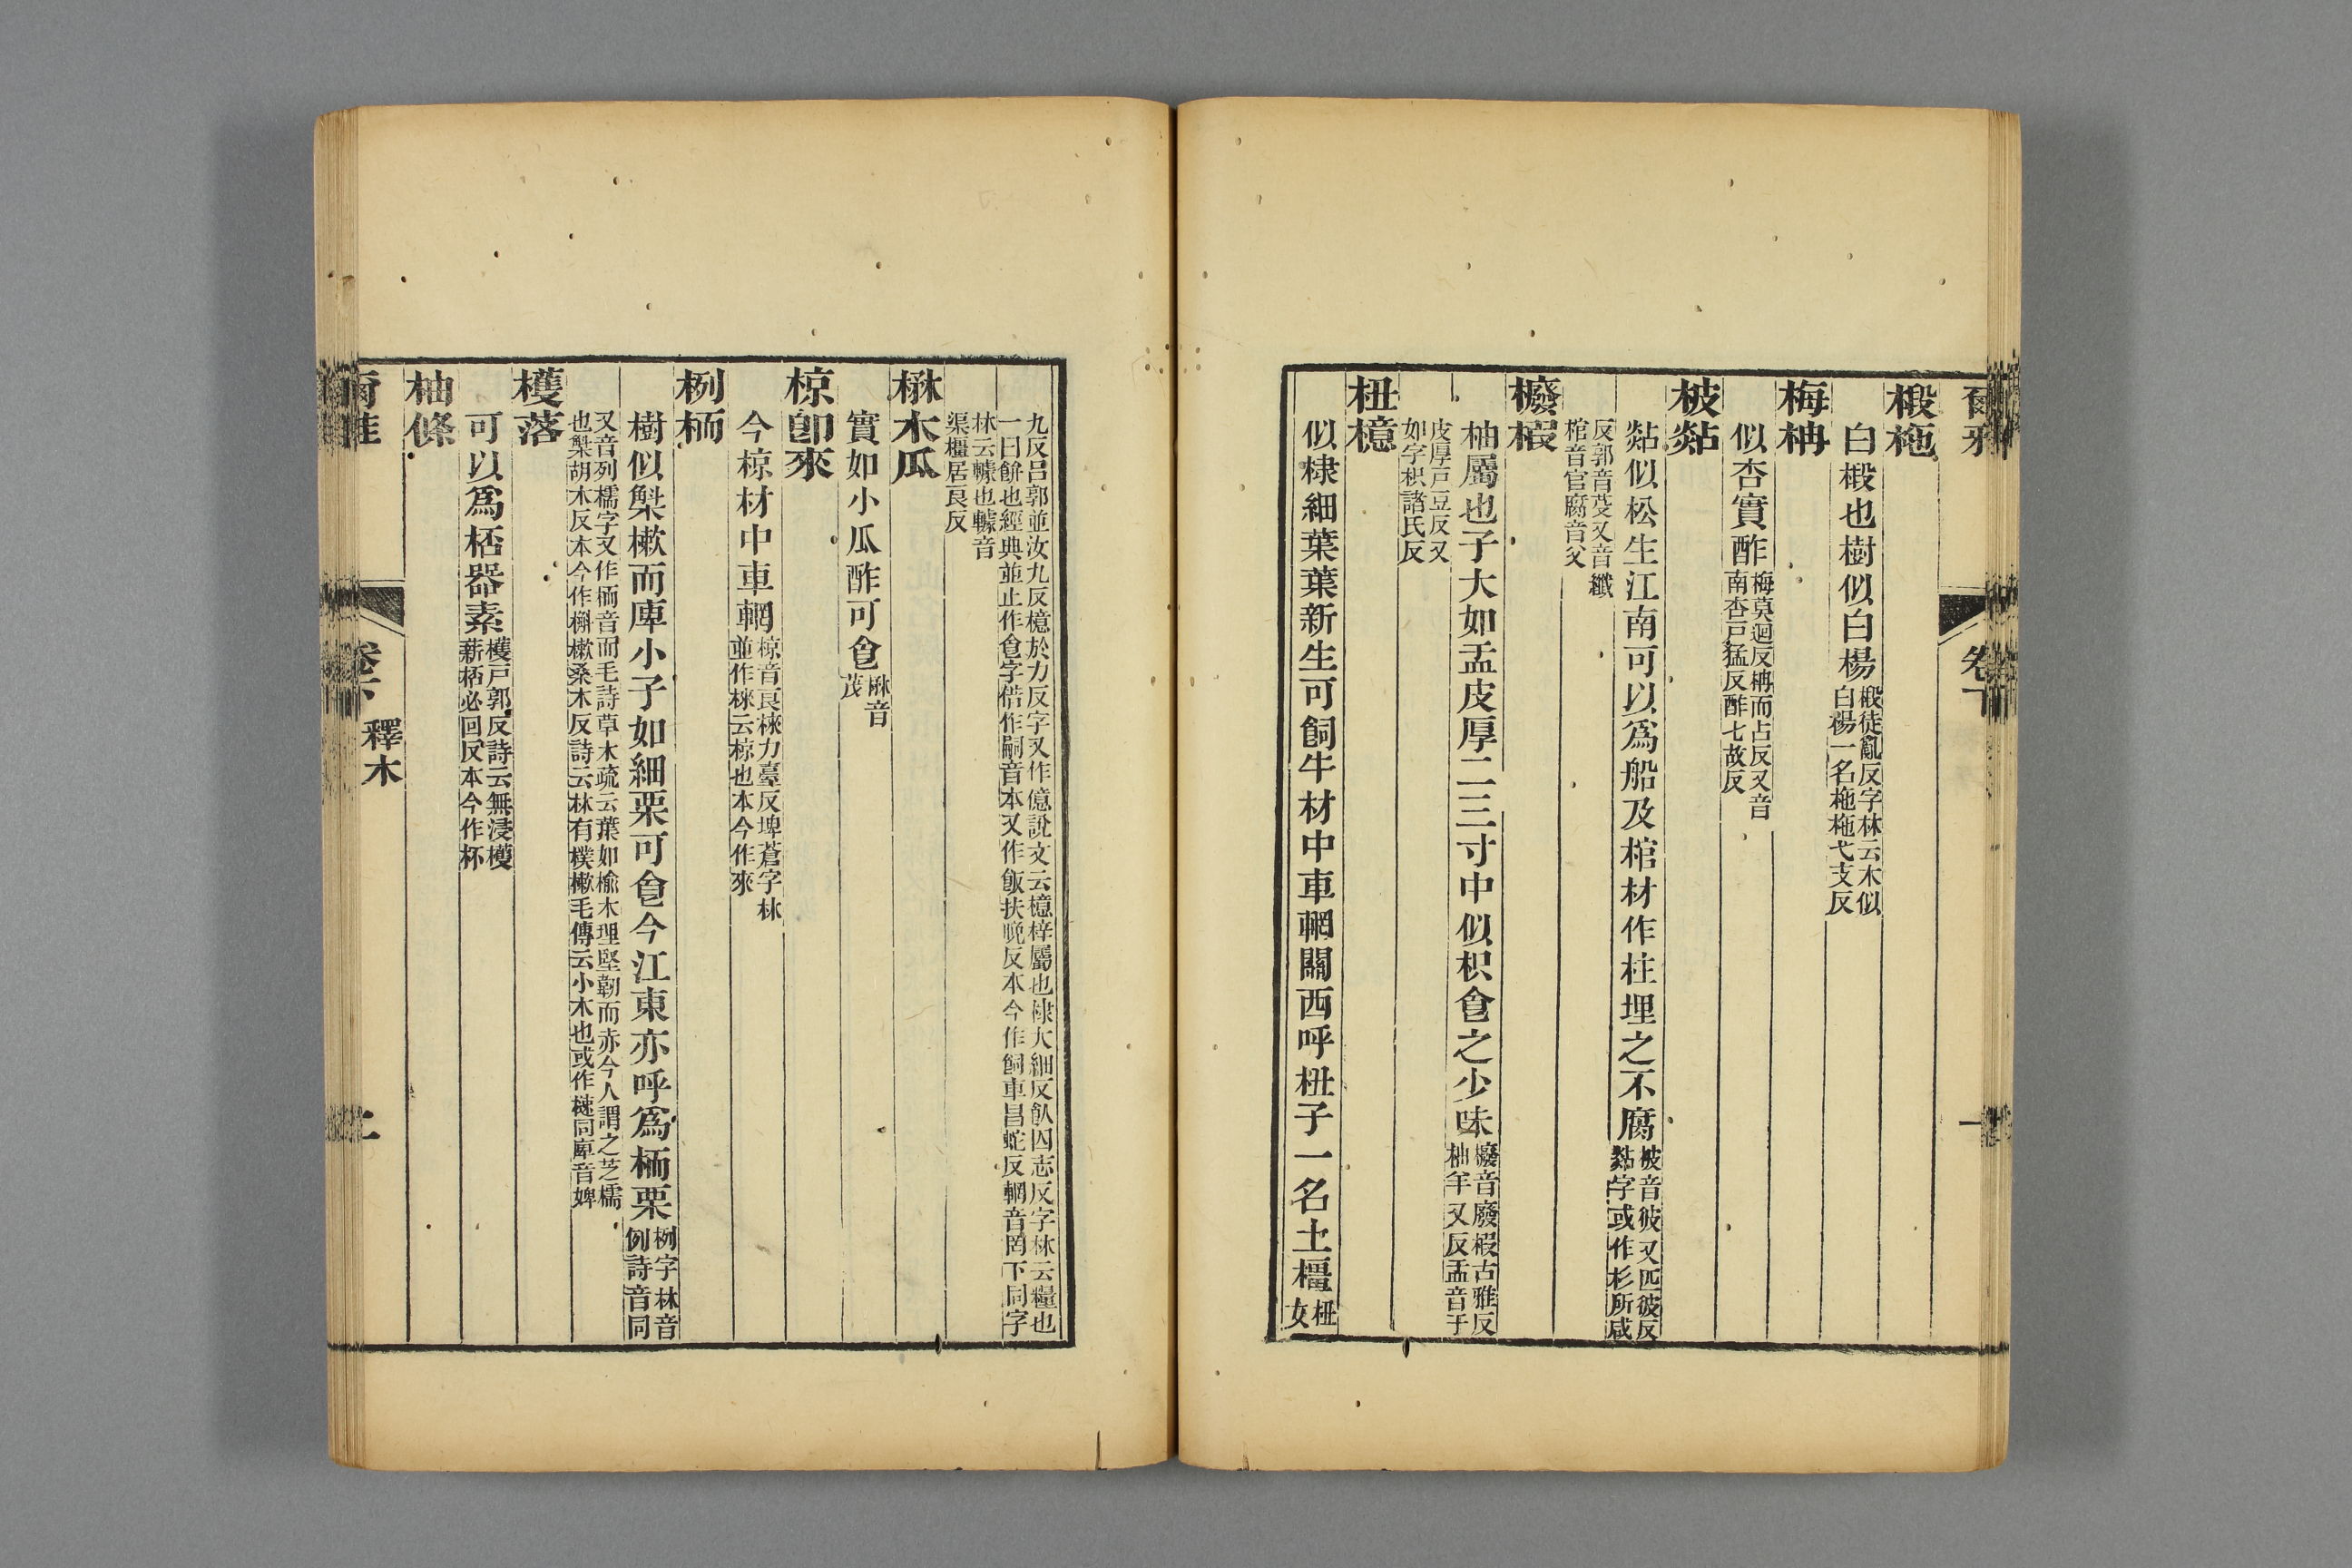 爾雅
卷下
椴柂
白椴也樹似白楊椴徒亂反字林云木似
白楊一名柂柂弋支反
梅柟
似杏實酢梅莫迴反柟而占反又音
南杏戸猛反酢七故反
柀㸃
㸃似松生江南可以爲船及棺材作柱埋之不腐柀音彼又匹彼反
㸃字或作杉所咸
反郭音芟又音纖
棺音官腐音父
櫠椵
柚屬也子大如盂皮厚二三寸中似枳食之少味櫠音廢椵古雅反
柚羊又反盂音于
皮厚戸豆反又
如字枳諸氏反
杻檍
似棣細葉葉新生可飼牛材中車輞關西呼杻子一名土橿杻
女
九反呂郭並汝九反檍於力反字又作億說文云檍梓屬也棣大細反飤囚志反字林云糧也
一曰餅也經典並止作食字偝作嗣音本又作飯扶晚反本今作飼車昌蛇反輞音罔下同字
林云轑也轑音
渠橿居良反
楙木瓜
實如小瓜酢可食楙音
茂
椋卽來
今椋材中車輞椋音良棶力臺反埤蒼字林
並作棶云椋也本今作來
栵栭
樹似槲樕而庳小子如細栗可食今江東亦呼爲栭栗栵字林音
例詩音同
又音列檽字又作栭音而毛詩草木疏云葉如榆木理堅韌而赤今人謂之芝檽
也槲胡木反本今作槲樕桑木反詩云林有樸樕毛傳云小木也或作樕同庳音婢
檴落
可以爲桮器素檴戸郭反詩云無浸檴
薪桮必回反本今作杯
柚條
爾雅
卷下
釋木